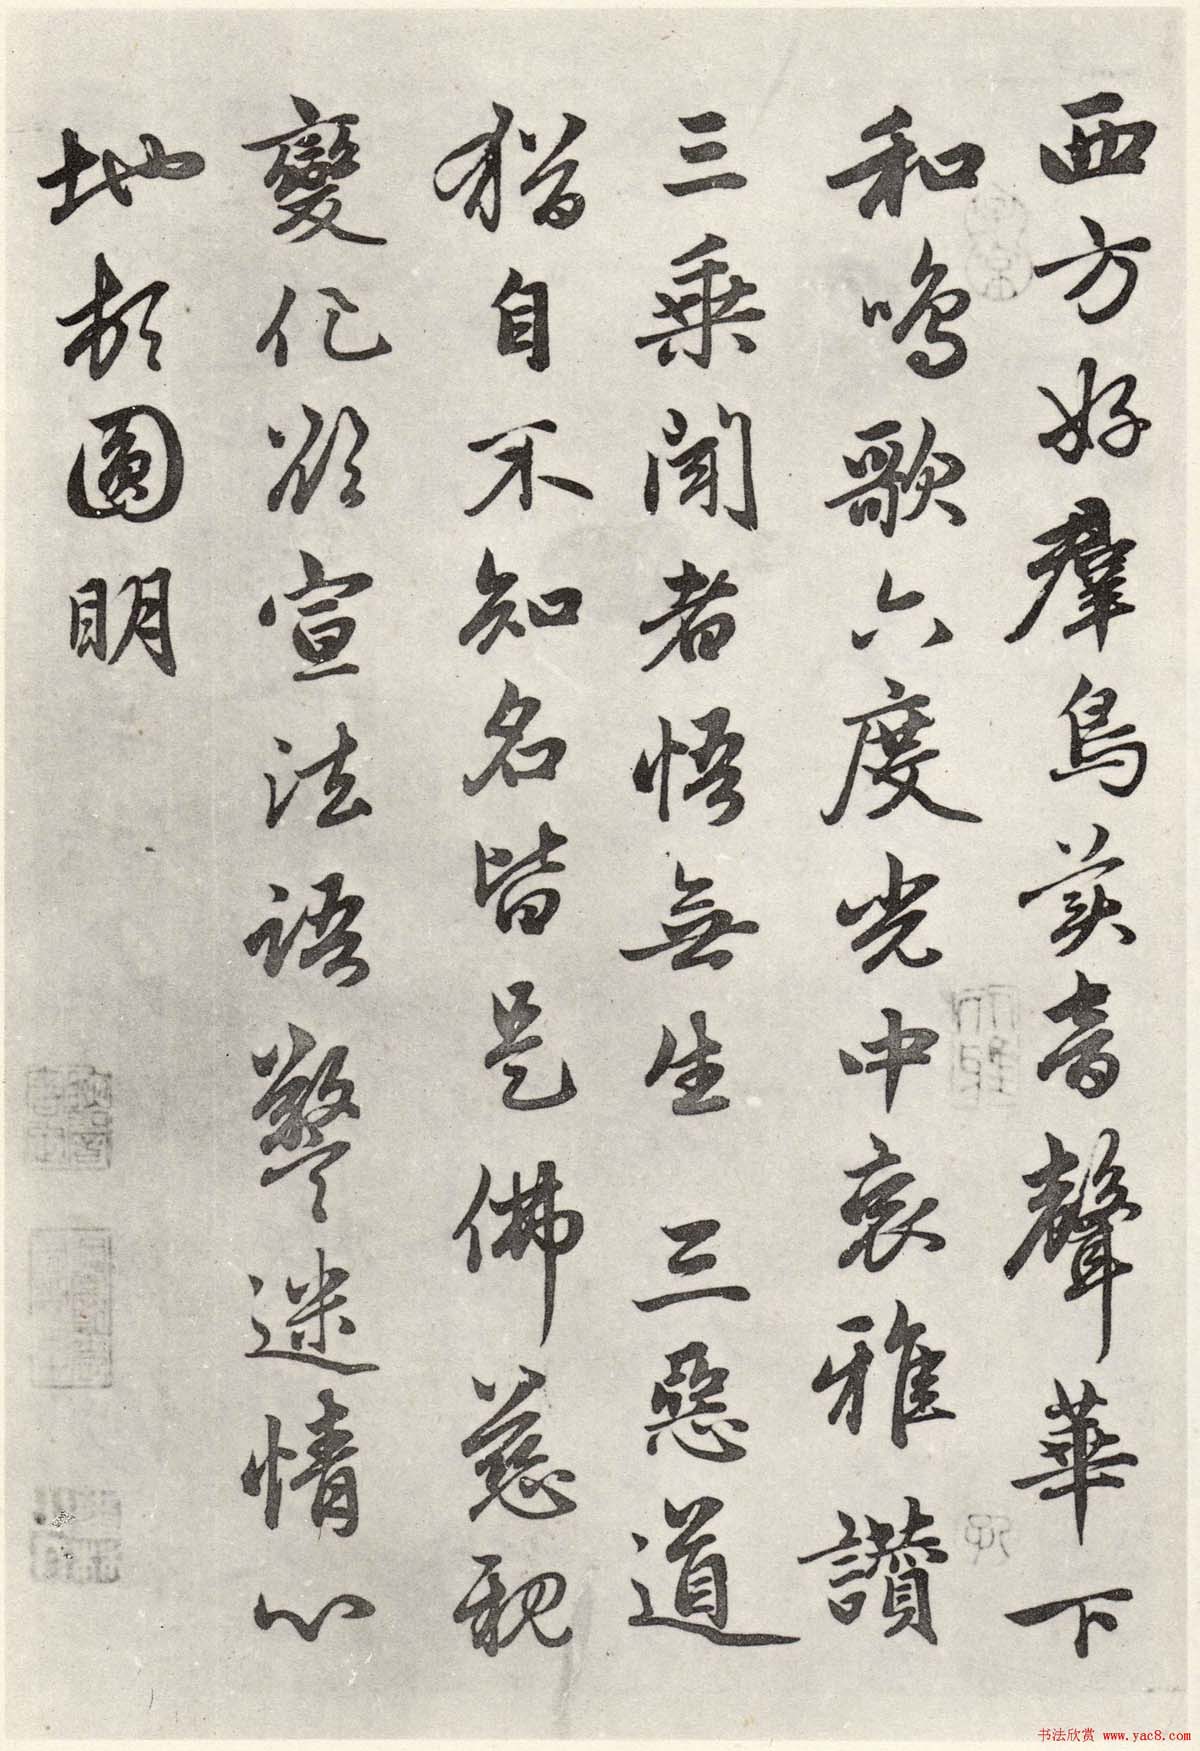 西方好羣鳥美音聲華下
和鳴歌六度光中哀雅讚
三乘聞者悟無生三惡道
猶自不知名皆是佛慈親
變化欲宣法語警迷情心
地頓圓明
书法欣赏 www.yac8.com